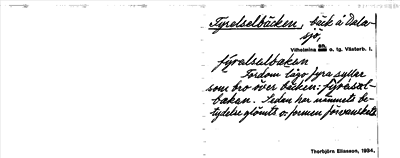 Fyrelselbäcken, bäck å Dala-
sjö,
Vilhelmina sn o. lg. Västerb. l.
fýrəlselbakən
Fordom lågo fyra syller
som bro över bäcken: fýrəsəl-
bakən. Sedan har namnets be-
tydelse glömts o. formen förvanskats
Thorbjörn Eliasson, 1934.